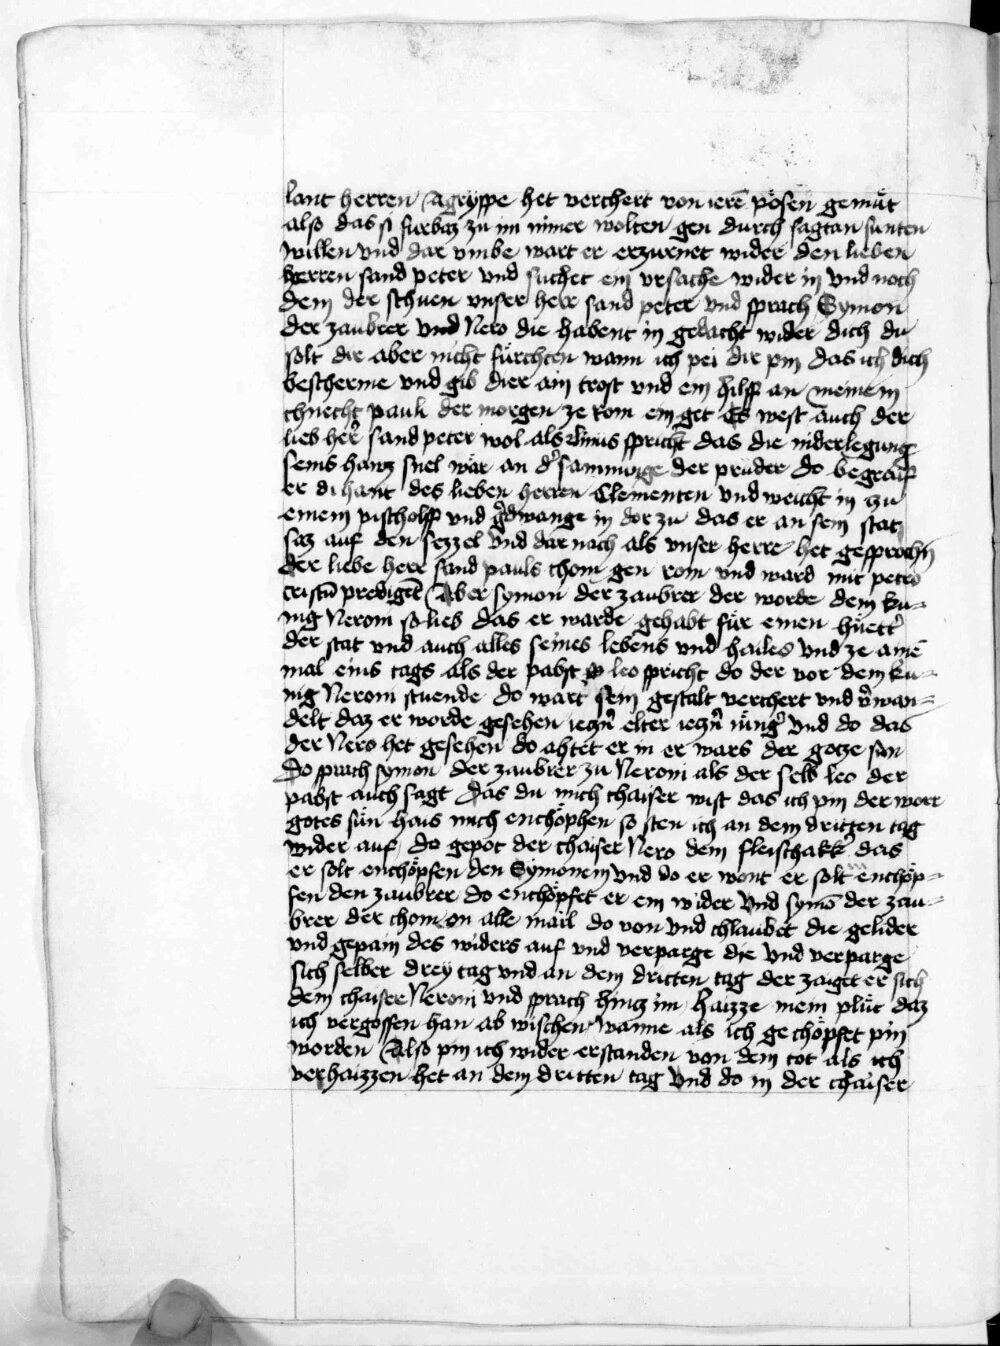 lant herren Agryppe het verchert von iere͞ pösen gemüt
also das si furbaz zu im nimer wolten gen durch sagtan sunten
willen vnd dar vmbe wart er erzurnet wider den lieben
herren sand peter vnd suchet ein vrsache wider in vnd noch
dem der schuen vnser herr sand peter vnd sprach Symon
der zaubrer vnd Nero die habent in gedacht wider dich du
solt dir aber nicht fürchten wann ich pei dir pin das ich dich
bescherme vnd gib dier ain trost vnd ein hilff an meinem
chnecht pauli der morgen ze rom ein get Es west auch der
lieb her͛ sand peter wol als linus spricht das die niderlegung
seins hauz snel wär an d͛ sammunge der prüder do begraif
er di hant des lieben herren Clementen vnd weicht in zu
einem pischolff vnd g͛dwange in dor zu das er an sein stat
saz auf den sezzel vnd dar nach als vnser herre het gesprochn̄
der liebe herr sand pauls chom gen rom vnd ward mit petro
cristu͞ predigen͞ Aber symon der zaubrer der worde dem ku-
nig Neroni so lieb das er warde gehabt für einen hüett͛
der stat vnd auch alles seines lebens vnd hailes vnd ze aine͞
mal eins tags als der pabst leo spricht do der vor dem ku-
nig Neroni stuende do wart sein gestalt verchert vnd v͛wan-
delt daz er worde gesehen iecztn̄ elter iecztn̄ iüng͛ vnd do das
der Nero het gesehen do ahtet er in er wars der gotze sun
do sprach symon der zaubrer zu Neroni als der selb leo der
pabst auch sagt das du mich chaiser wist das ich pin der worr
gotes sün hais mich enchöphen so sten ich an dem dritten tag
wider auf do gepot der chaiser Nero dem fleischakk͛ das
er solt enchöpfen den Symonem vnd do er wont er solt enchöp-
fen den zaubrer do enchöpfet er ein wider vnd symo͞ der zau-
brer der chom on alle mail do von vnd chlaubet die gelider
vnd gepain des widers auf vnd verparge die vnd verparge
sich selber drey tag vnd an dem dritten tag der zaiget er sich
dem chaiser Neroni vnd sprach hincz im haizze mein plüt daz
ich vergossen han ab wischen wanne als ich ge chöpfet pin
worden Also pin ich wider erstanden von dem tot als ich
verhaizzen het an dem dritten tag vnd do in der chaiser